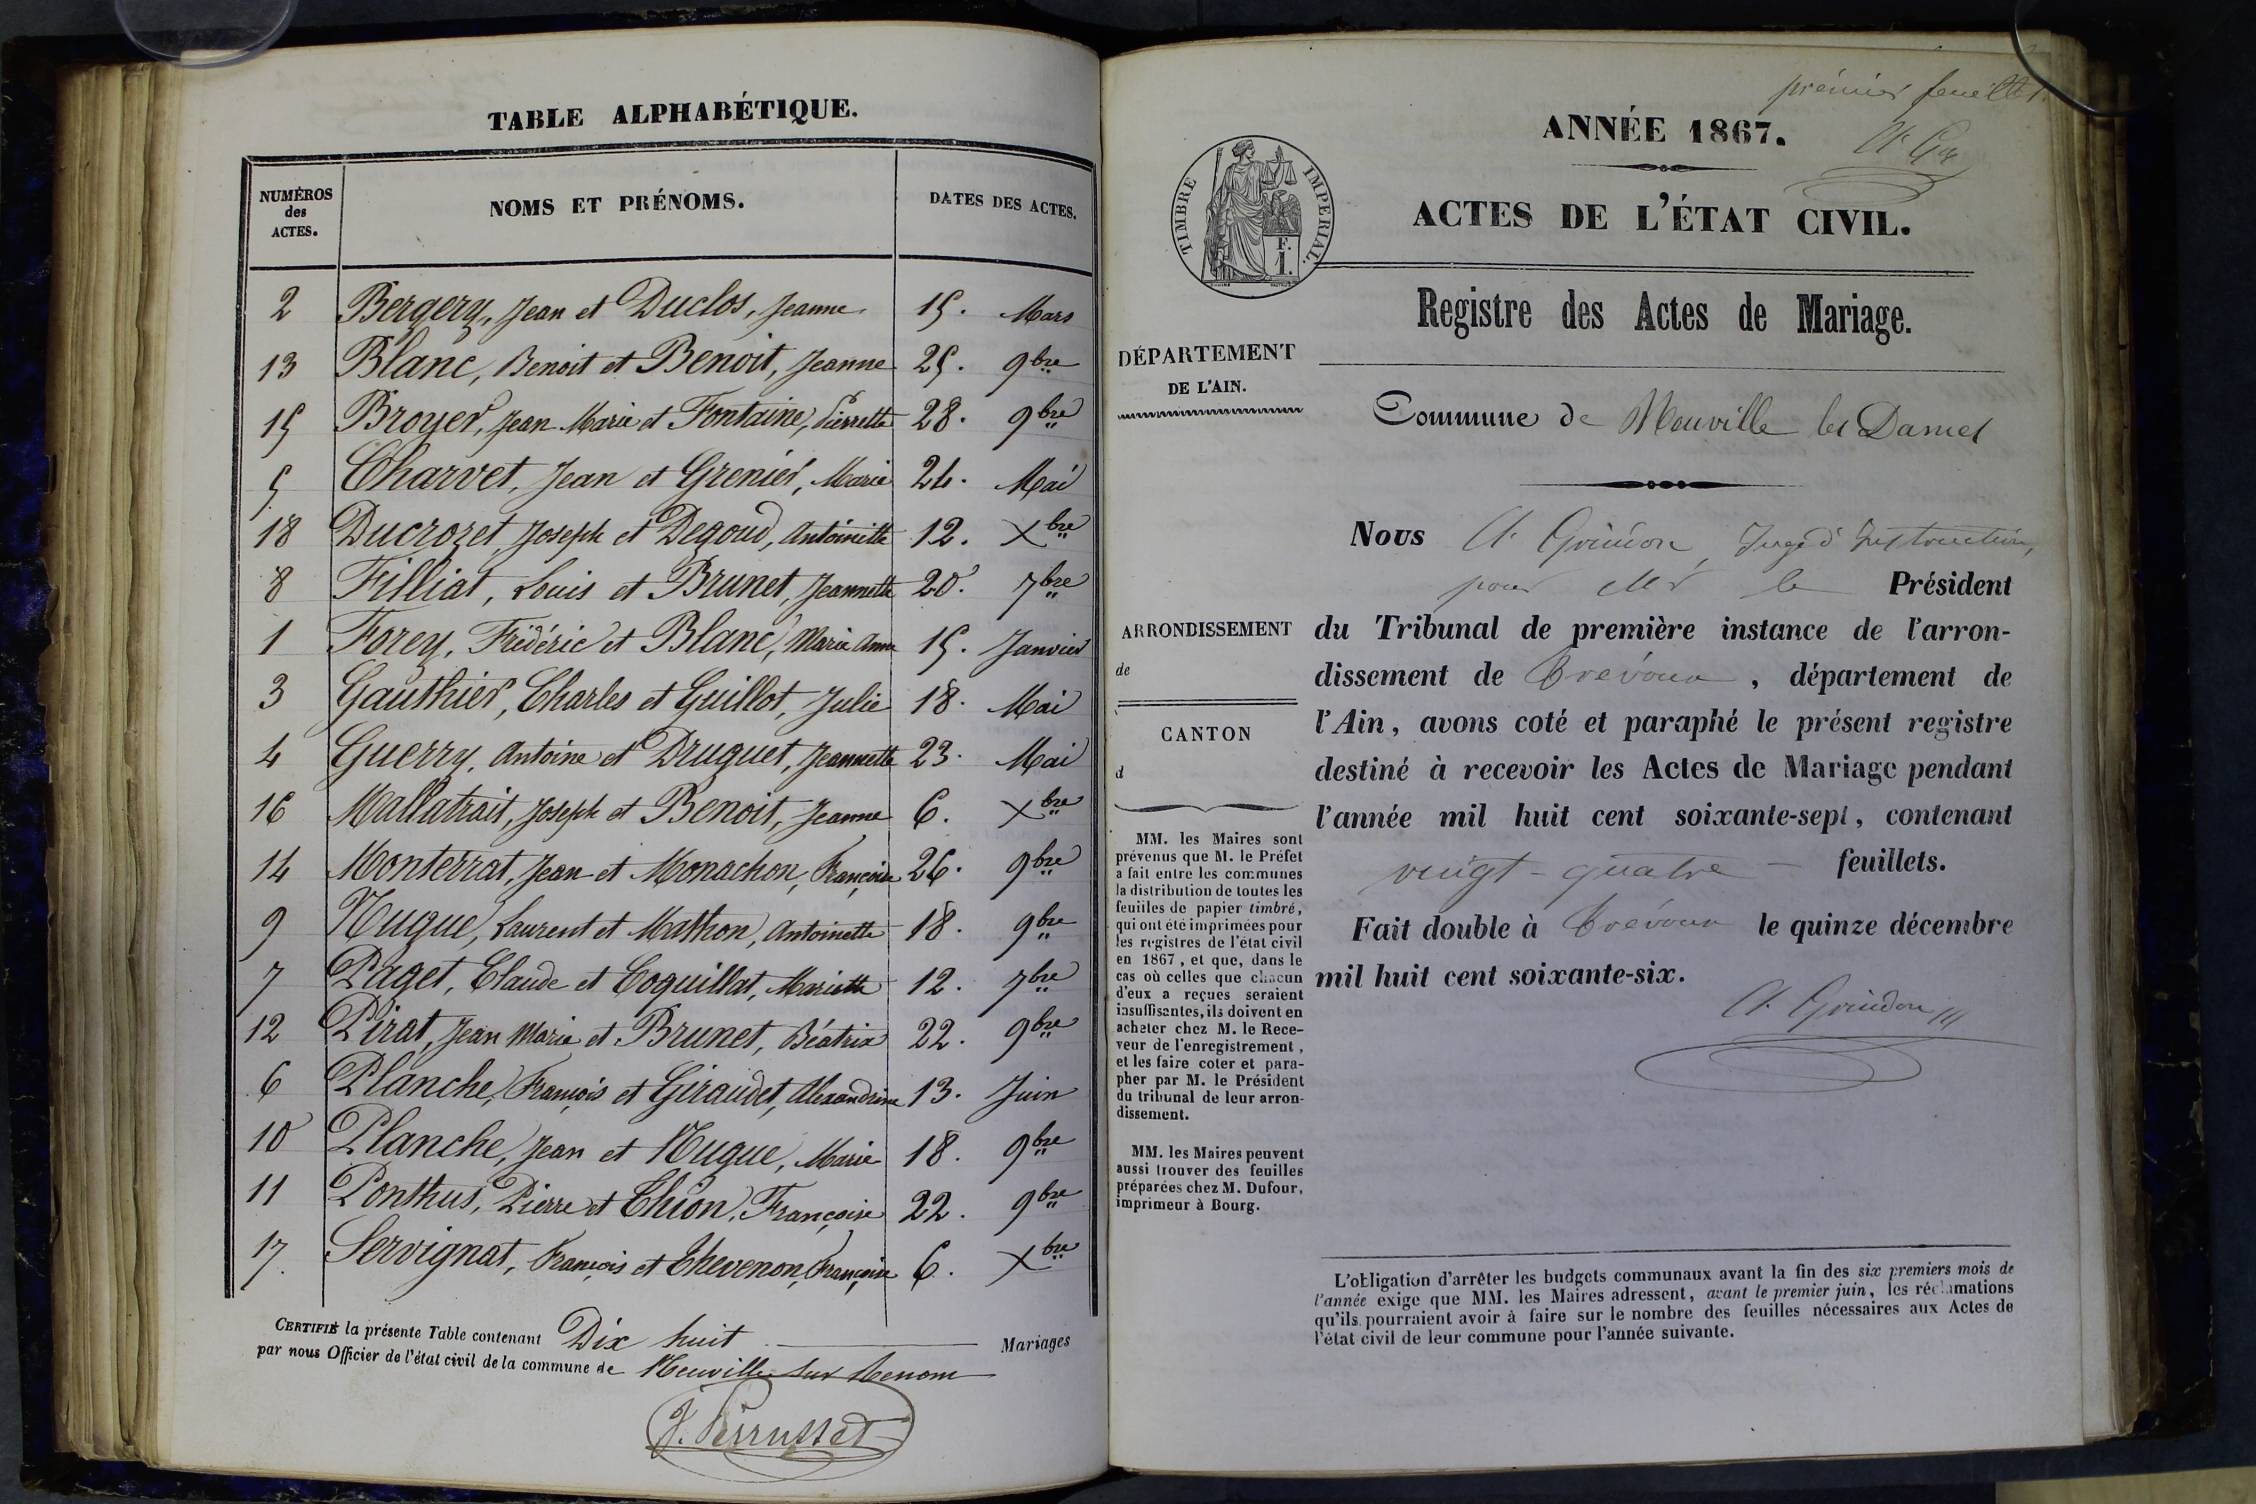 TABLE ALPHABÉTIQUE.
NUMÉROS des ACTES.
NOMS ET PRÉNOMS.
DATES DES ACTES.
2 Bergery, Jean et Duclos, Jeanne. 15. Mars
13 Blanc, Benoit et Benoit, Jeanne 25. 9bre
15 Broyer, Jean Marie et Fontaine, Pierrette 28. 9bre
5 Charvet, Jean et Grenier, Marie 24. Mai
18 Ducrozet, Joseph et Degoud, Antoinette 12. Xbre
8 Filliat, Louis et Brunet, Jeannette 20. 7bre
1 Forey, Frédéric et Blanc, Marie Anne 15. Janvier
3 Gauthier, Charles et Guillot, Julie 18. Mai
4 Guerry, Antoine et Druguet, Jeannette 23. Mai
16 Mallatrait, Joseph et Benoit, Jeanne 6. Xbre
14 Monterrat, Jean et Monachon, Françoise 26. 9bre
9 Nugue, Laurent et Mathon, Antoinette 18. 9bre
7 Paget, Claude et Coquillat, Mariette 12. 7bre
12 Pirat, Jean Marie et Brunet, Béatrix 22. 9bre
6 Planche, François et Giraudet, Alexandrine 13. Juin
10 Planche, Jean et Nugue, Marie 18. 9bre
11 Ponthus, Pierre et Chion, Françoise 22. 9bre
17. Servignat, François et Thevenon, Françoise 6. Xbre
CERTIFIÉ la présente Table contenant Dix huit Mariages
par nous Officier de l'état civil de la commune de Neuville sur Renom
J. Perrusset
prémier feuillet
ANNÉE 1867.
TIMBRE IMPERIAL.
F.
1.
ACTES DE L'ÉTAT CIVIL.
Registre des Actes de Mariage.
DÉPARTEMENT
DE L'AIN.
Commune de Neuville les Dames
Nous A. Grindon, Juge d'Instruction,
pour Mr le Président
ARRONDISSEMENT
de
du Tribunal de première instance de l'arron-
dissement de Trévoux, département de
l'Ain, avons coté et paraphé le présent registre
destiné à recevoir les Actes de Mariage pendant
l'année mil huit cent soixante-sept, contenant
vingt-quatre feuillets.
Fait double à Trévoux le quinze décembre
mil huit cent soixante-six.
A. Grindon
CANTON
d
MM. les Maires sont
prévenus que M. le Préfet
a fait entre les communes
la distribution de toutes les
feuilles de papier timbré,
qui ont été imprimées pour
les registres de l'état civil
en 1867, et que, dans le
cas où celles que chacun
d'eux a reçues seraient
insuffisantes, ils doivent en
acheter chez M. le Rece-
veur de l'enregistrement,
et les faire coter et para-
pher par M. le Président
du tribunal de leur arron-
dissement.
MM. les Maires peuvent
aussi trouver des feuilles
préparées chez M. Dufour,
imprimeur à Bourg.
L'obligation d'arrêter les budgets communaux avant la fin des six premiers mois de
l'année exige que MM. les Maires adressent, avant le premier juin, les réclamations
qu'ils pourraient avoir à faire sur le nombre des feuilles nécessaires aux Actes de
l'état civil de leur commune pour l'année suivante.